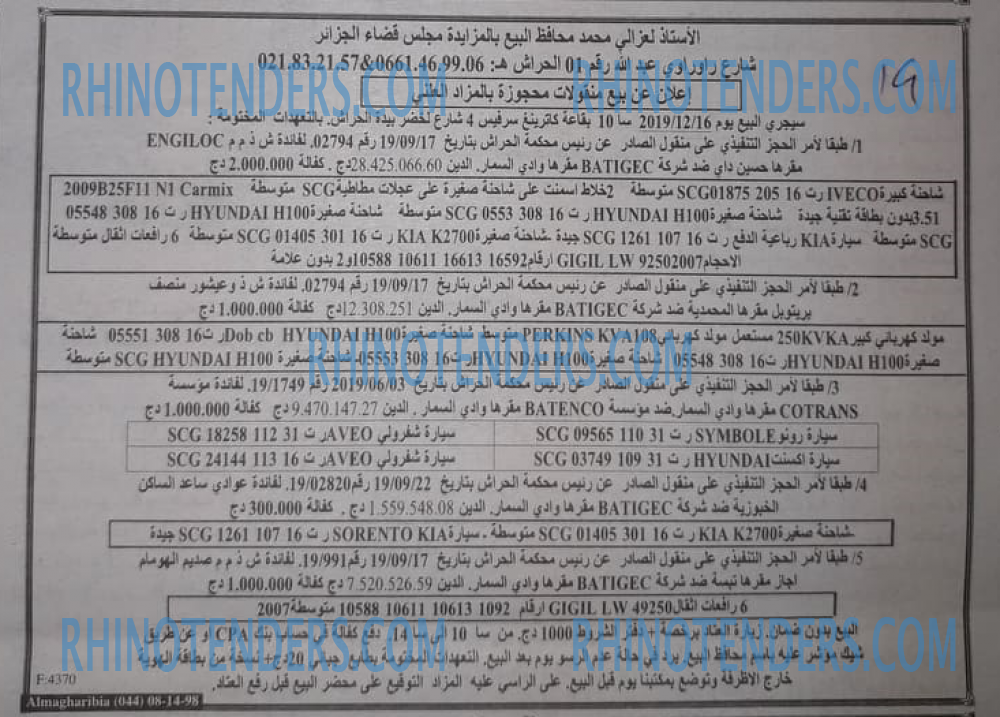 الأستاذ لعزالي محمد محافظ البيع بالمزايدة مجلس قضاء الجزائر
شارع راوراوي عبد الله رقم 01 الحراش هـ: 0661.46.99.06&021.83.21.57
19
إعلان عن بيع منقولات محجوزة بالمزاد العلني
سيجري البيع يوم 2019/12/16 سا 10 بقاعة كاترينغ سرفيس 4 شارع لخضر بيدة الحراش. بالتعهدات المختومة :
1/ طبقا لأمر الحجز التنفيذي على منقول الصادر عن رئيس محكمة الحراش بتاريخ 19/09/17 رقم 02794. لفائدة ش ذ م م ENGILOC
مقرها حسين داي ضد شركة BATIGEC مقرها وادي السمار. الدين 28.425.066.60دج. كفالة 2.000.000 دج
شاحنة كبيرة IVECO رت 16 205 SCG01875 متوسطة 2خلاط اسمنت على شاحنة صغيرة على عجلات مطاطية SCG متوسطة 2009B25F11 N1 Carmix
3.51بدون بطاقة تقنية جيدة شاحنة صغيرة HYUNDAI H100 رت 16 308 SCG 0553 متوسطة شاحنة صغيرة HYUNDAI H100 رت 16 308 05548
SCG متوسطة سيارة KIA رباعية الدفع رت 16 107 SCG 1261 جيدة -شاحنة صغيرة KIA K2700 رت 16 301 SCG 01405 متوسطة 6 رافعات اثقال متوسطة
الاحجام GIGIL LW 92502007 ارقام 16592 16613 10611 10588 و2 بدون علامة
2/ طبقا لأمر الحجز التنفيذي على منقول الصادر عن رئيس محكمة الحراش بتاريخ 19/09/17 رقم 02794. لفائدة ش ذ وعيشور منصف
بريتوبل مقرها المحمدية ضد شركة BATIGEC مقرها وادي السمار. الدين 12.308.251دج كفالة 1.000.000 دج
مولد كهربائي كبير 250KVKA مستعمل مولد كهربائي PERKINS KVA108 متوسط شاحنة صغيرة Dob cb HYUNDAI H100 رت 16 308 05551 شاحنة
صغيرة HYUNDAI H100 رت 16 308 05548 شاحنة صغيرة HYUNDAI H100 رت 16 308 05553-شاحنة صغيرة SCG HYUNDAI H100 متوسطة
3/ طبقا لأمر الحجز التنفيذي على منقول الصادر عن رئيس محكمة الحراش بتاريخ 2019/06/03 رقم 19/1749. لفائدة مؤسسة
COTRANS مقرها وادي السمار.ضد مؤسسة BATENCO مقرها وادي السمار. الدين 9.470.147.27دج كفالة 1.000.000 دج
سيارة رونو SYMBOLE رت 31 110 SCG 09565 سيارة شفرولي AVEO رت 31 112 SCG 18258
سيارة اكسنت HYUNDAI رت 31 109 SCG 03749 سيارة شفرولي AVEO رت 16 113 SCG 24144
4/ طبقا لأمر الحجز التنفيذي على منقول الصادر عن رئيس محكمة الحراش بتاريخ 19/09/22 رقم 19/02820. لفائدة عوادي ساعد الساكن
الخبوزية ضد شركة BATIGEC مقرها وادي السمار. الدين 1.559.548.08 دج. كفالة 300.000 دج
-شاحنة صغيرة KIA K2700 رت 16 301 SCG 01405 متوسطة - سيارة SORENTO KIA رت 16 107 SCG 1261 جيدة
5/ طبقا لأمر الحجز التنفيذي على منقول الصادر عن رئيس محكمة الحراش بتاريخ 19/09/17 رقم 19/991. لفائدة ش ذ م م صديم الهومام
اجاز مقرها تبسة ضد شركة BATIGEC مقرها وادي السمار. الدين 7.520.526.59 دج كفالة 1.000.000 دج
6 رافعات اثقال GIGIL LW 49250 ارقام 1092 10613 10611 10588 متوسطة2007
البيع بدون ضمان. زيارة العتاد برخصة + دفتر الشروط 1000 دج. من سا 10 الى سا 14. دفع كفالة في حساب بنك CPA او عن طريق
شيك مؤشر عليه باسم محافظ البيع يرد في حالة عدم الرسو يوم بعد البيع. التعهدات المختومة بطابع جبائي 20دج+ نسخة من بطاقة الهوية
خارج الاظرفة وتوضع بمكتبنا يوم قبل البيع. على الراسي عليه المزاد التوقيع على محضر البيع قبل رفع العتاد.
F:4370
Almagharibia (044) 08-14-98
RHINOTENDERS.COM RHINOTENDERS.COM
RHINOTENDERS.COM
RHINOTENDERS.COM RHINOTENDERS.COM